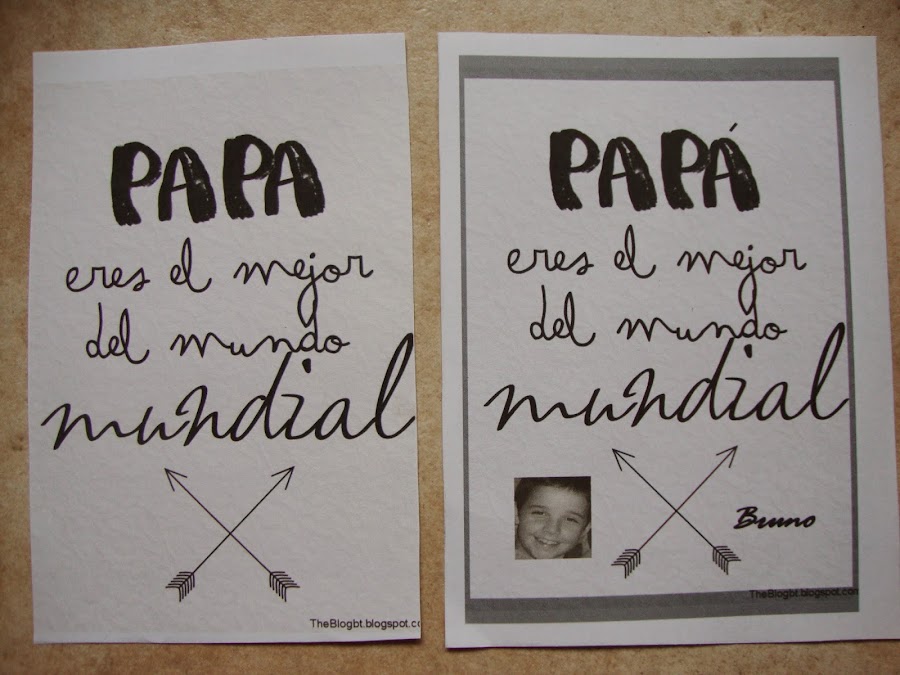 PAPA
eres el mejor
del mundo
mundial
TheBlogbt.blogspot.co
PAPÁ
eres el mejor
del mundo
mundial
Bruno
TheBlogbt.blogspot.com